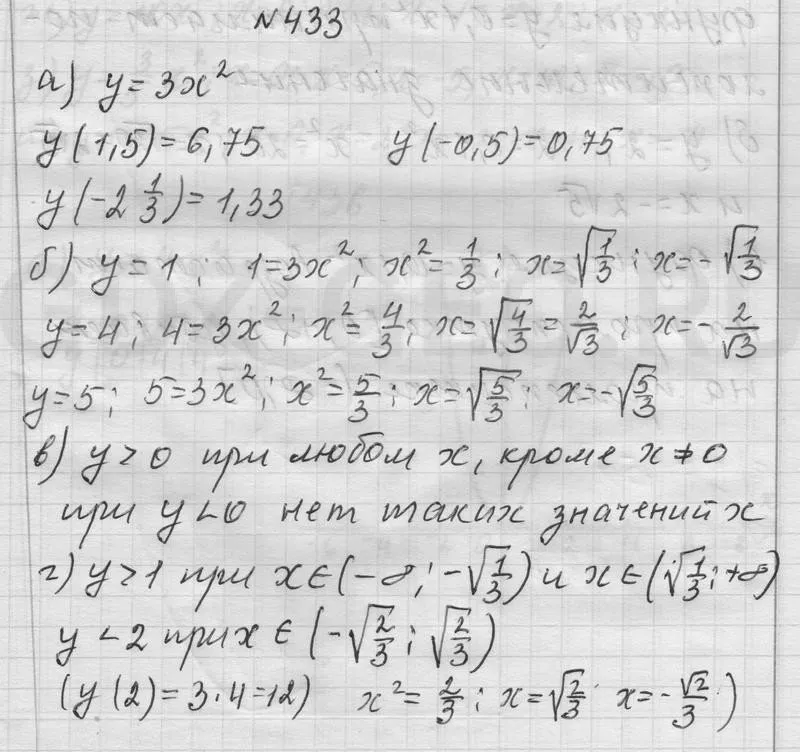 №433
а) y = 3x²
y(1,5)=6,75 y(-0,5)=0,75
y(-2 1/3)=1,33
б) y = 1; 1=3x²; x²= 1/3; x=√(1/3); x=-√(1/3)
y=4; 4=3x²; x²= 4/3; x=√(4/3) = 2/√3; x=- 2/√3
y=5; 5=3x²; x²= 5/3; x=√(5/3); x=-√(5/3)
в) y>0 при любом x, кроме x≠0
при y<0 нет таких значений x
г) y>1 при x∈(-∞; -√(1/3)) и x∈(√(1/3); +∞)
y<2 при x∈(-√(2/3); √(2/3))
(y(2)=3·4=12) x²= 2/3; x=√(2/3) x=- √2/3)